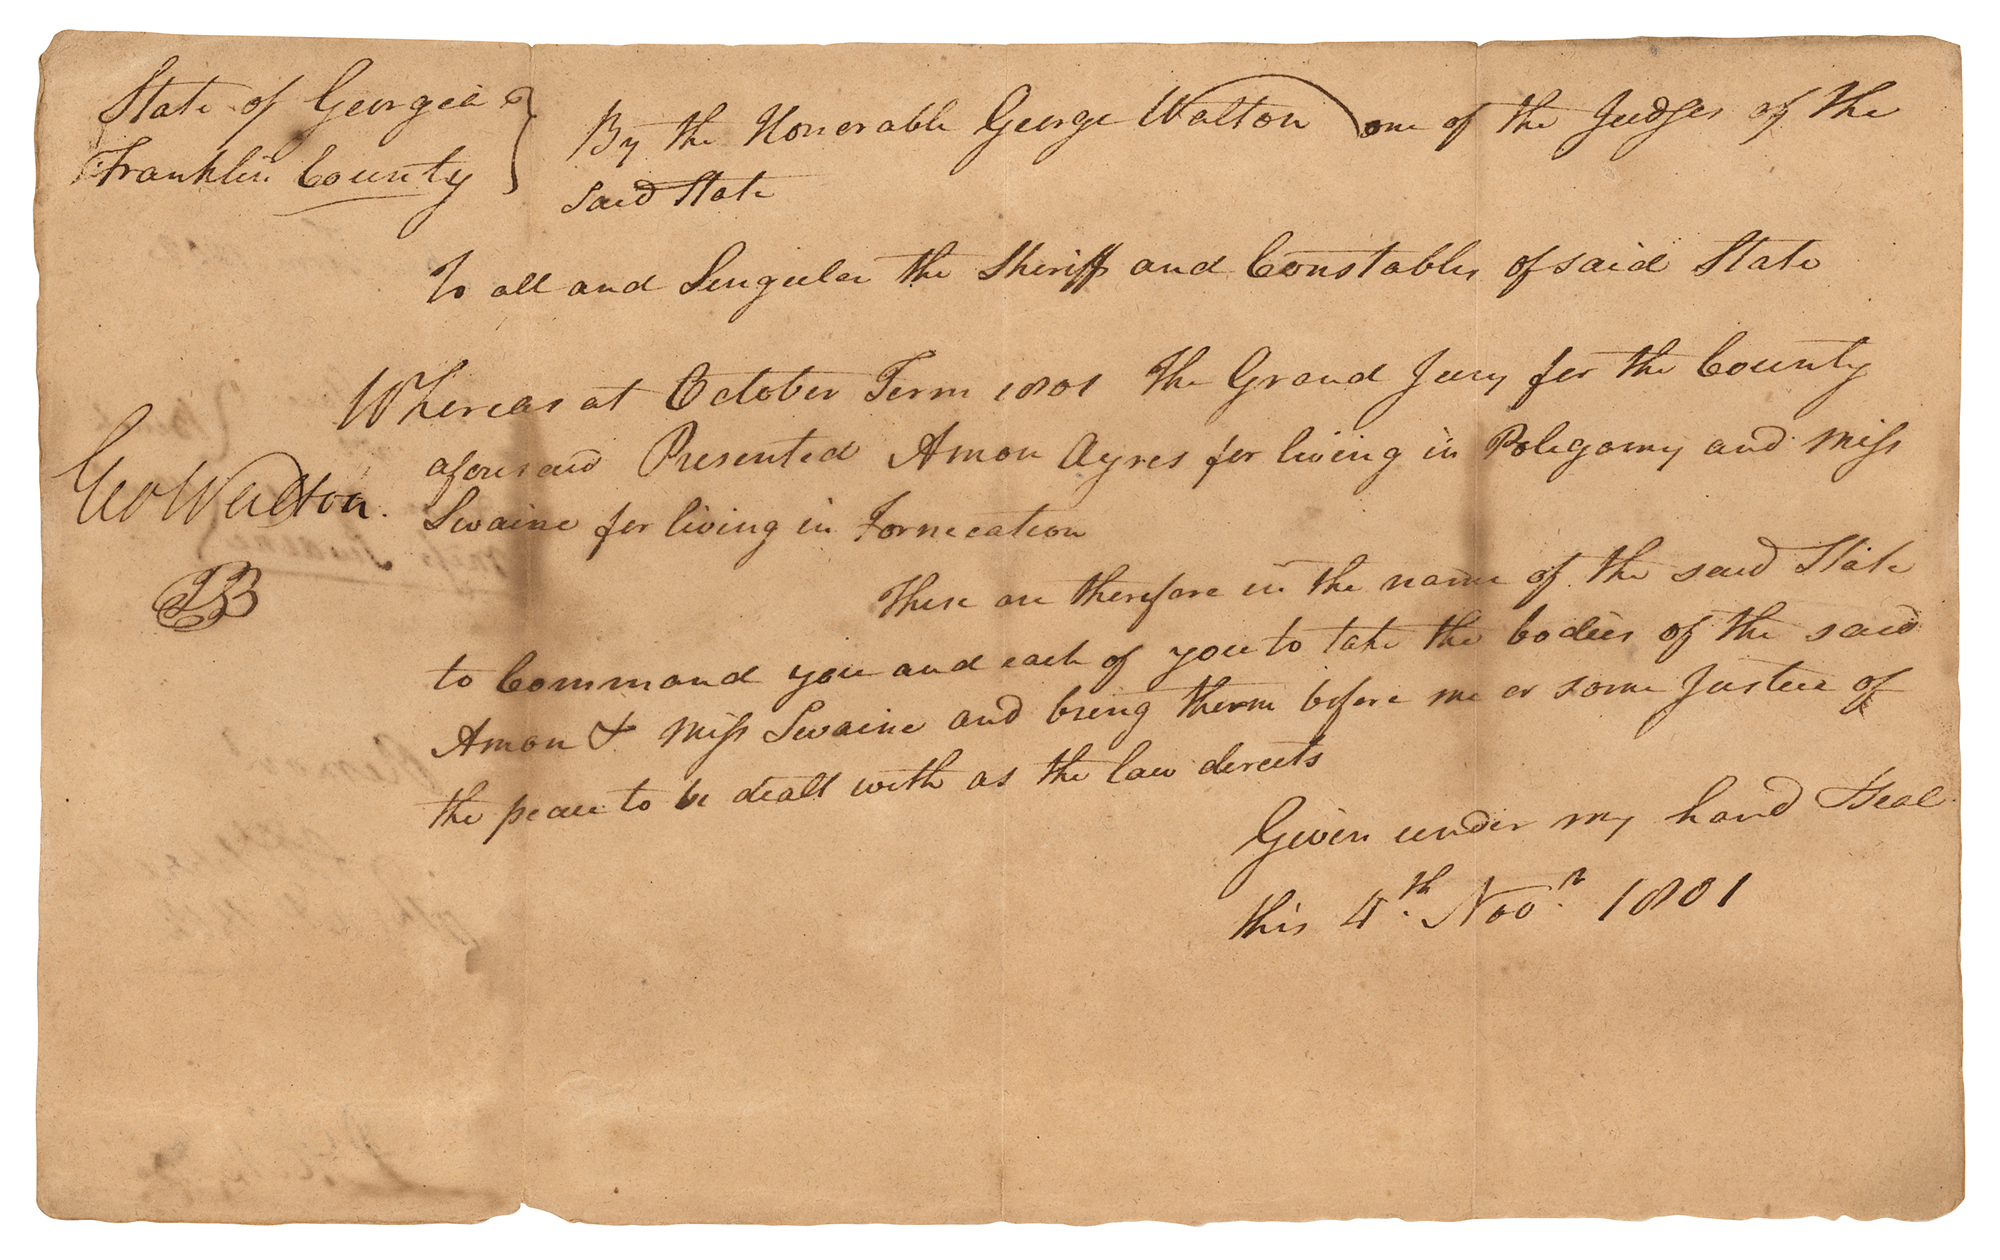 State of Georgia
Franklin County
By the Honorable George Walton one of the Judges of the
said State
To all and Singular the Sheriffs and Constables of said State
Whereas at October Term 1801 The Grand Jury for the County
aforesaid Presented Amon Ayres for living in Poligamy and Miss
Swaine for living in Fornication
These are therefore in the name of the said State
to Command you and each of you to take the bodies of the said
Amon & Miss Swaine and bring them before me or some Justice of
the peace to be dealt with as the law directs
Given under my hand & Seal
this 4th. Novr. 1801
Geo Walton.